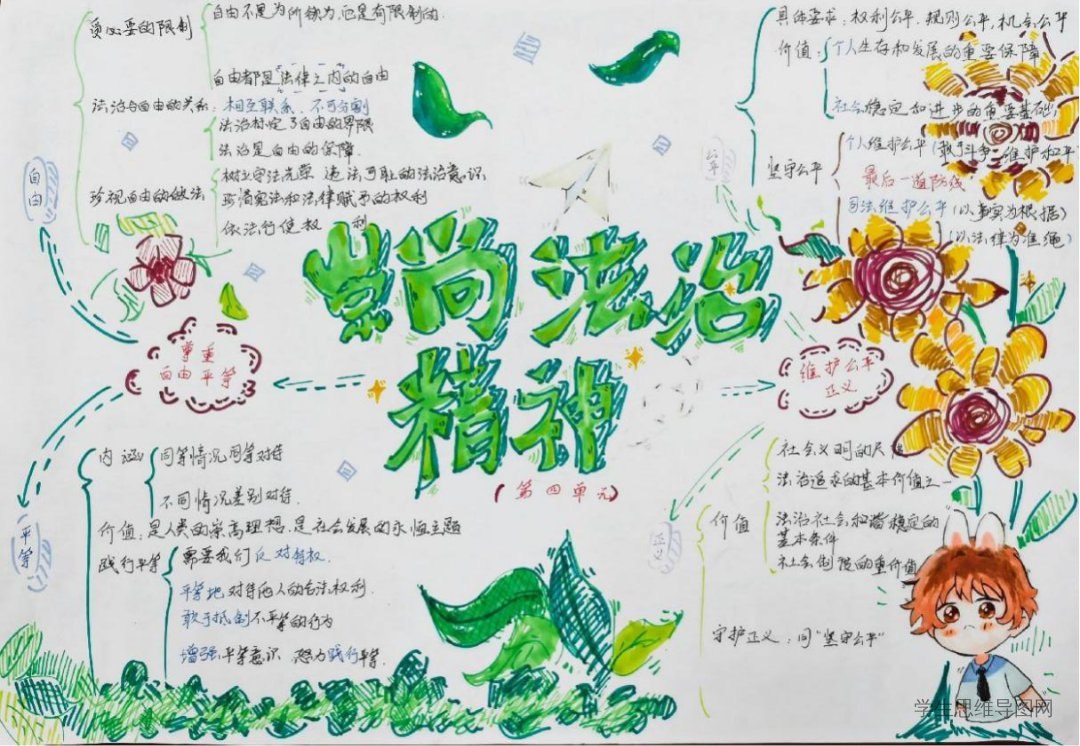 崇尚法治
精神
(第四单元)
尊重
自由平等
自由
有必要的限制
自由不是为所欲为,它是有限制的.
自由都是法律之内的自由
法治与自由的关系:相互联系、不可分割
法治标定了自由的界限
法治是自由的保障.
珍视自由的做法
树立守法光荣 违法可耻的法治意识.
珍惜宪法和法律赋予的权利
依法行使权利
平等
内涵
同等情况同等对待
不同情况差别对待.
价值:是人类的崇高理想,是社会发展的永恒主题
践行平等
需要我们反对特权.
平等地对待他人的合法权利.
敢于抵制不平等的行为
增强平等意识 努力践行平等.
维护公平
正义
公平
具体要求:权利公平,规则公平,机会公平
价值:个人生存和发展的重要保障
社会稳定和进步的重要基础
坚守公平
个人维护公平(敢于斗争,维护权平
最后一道防线
司法维护公平(以事实为根据)
(以法律为准绳)
正义
价值
社会文明的尺
法治追求的基本价值之一
法治社会和谐稳定的
基本条件
社会制度的重价值
守护正义:同"坚守公平"
学生思维导图网